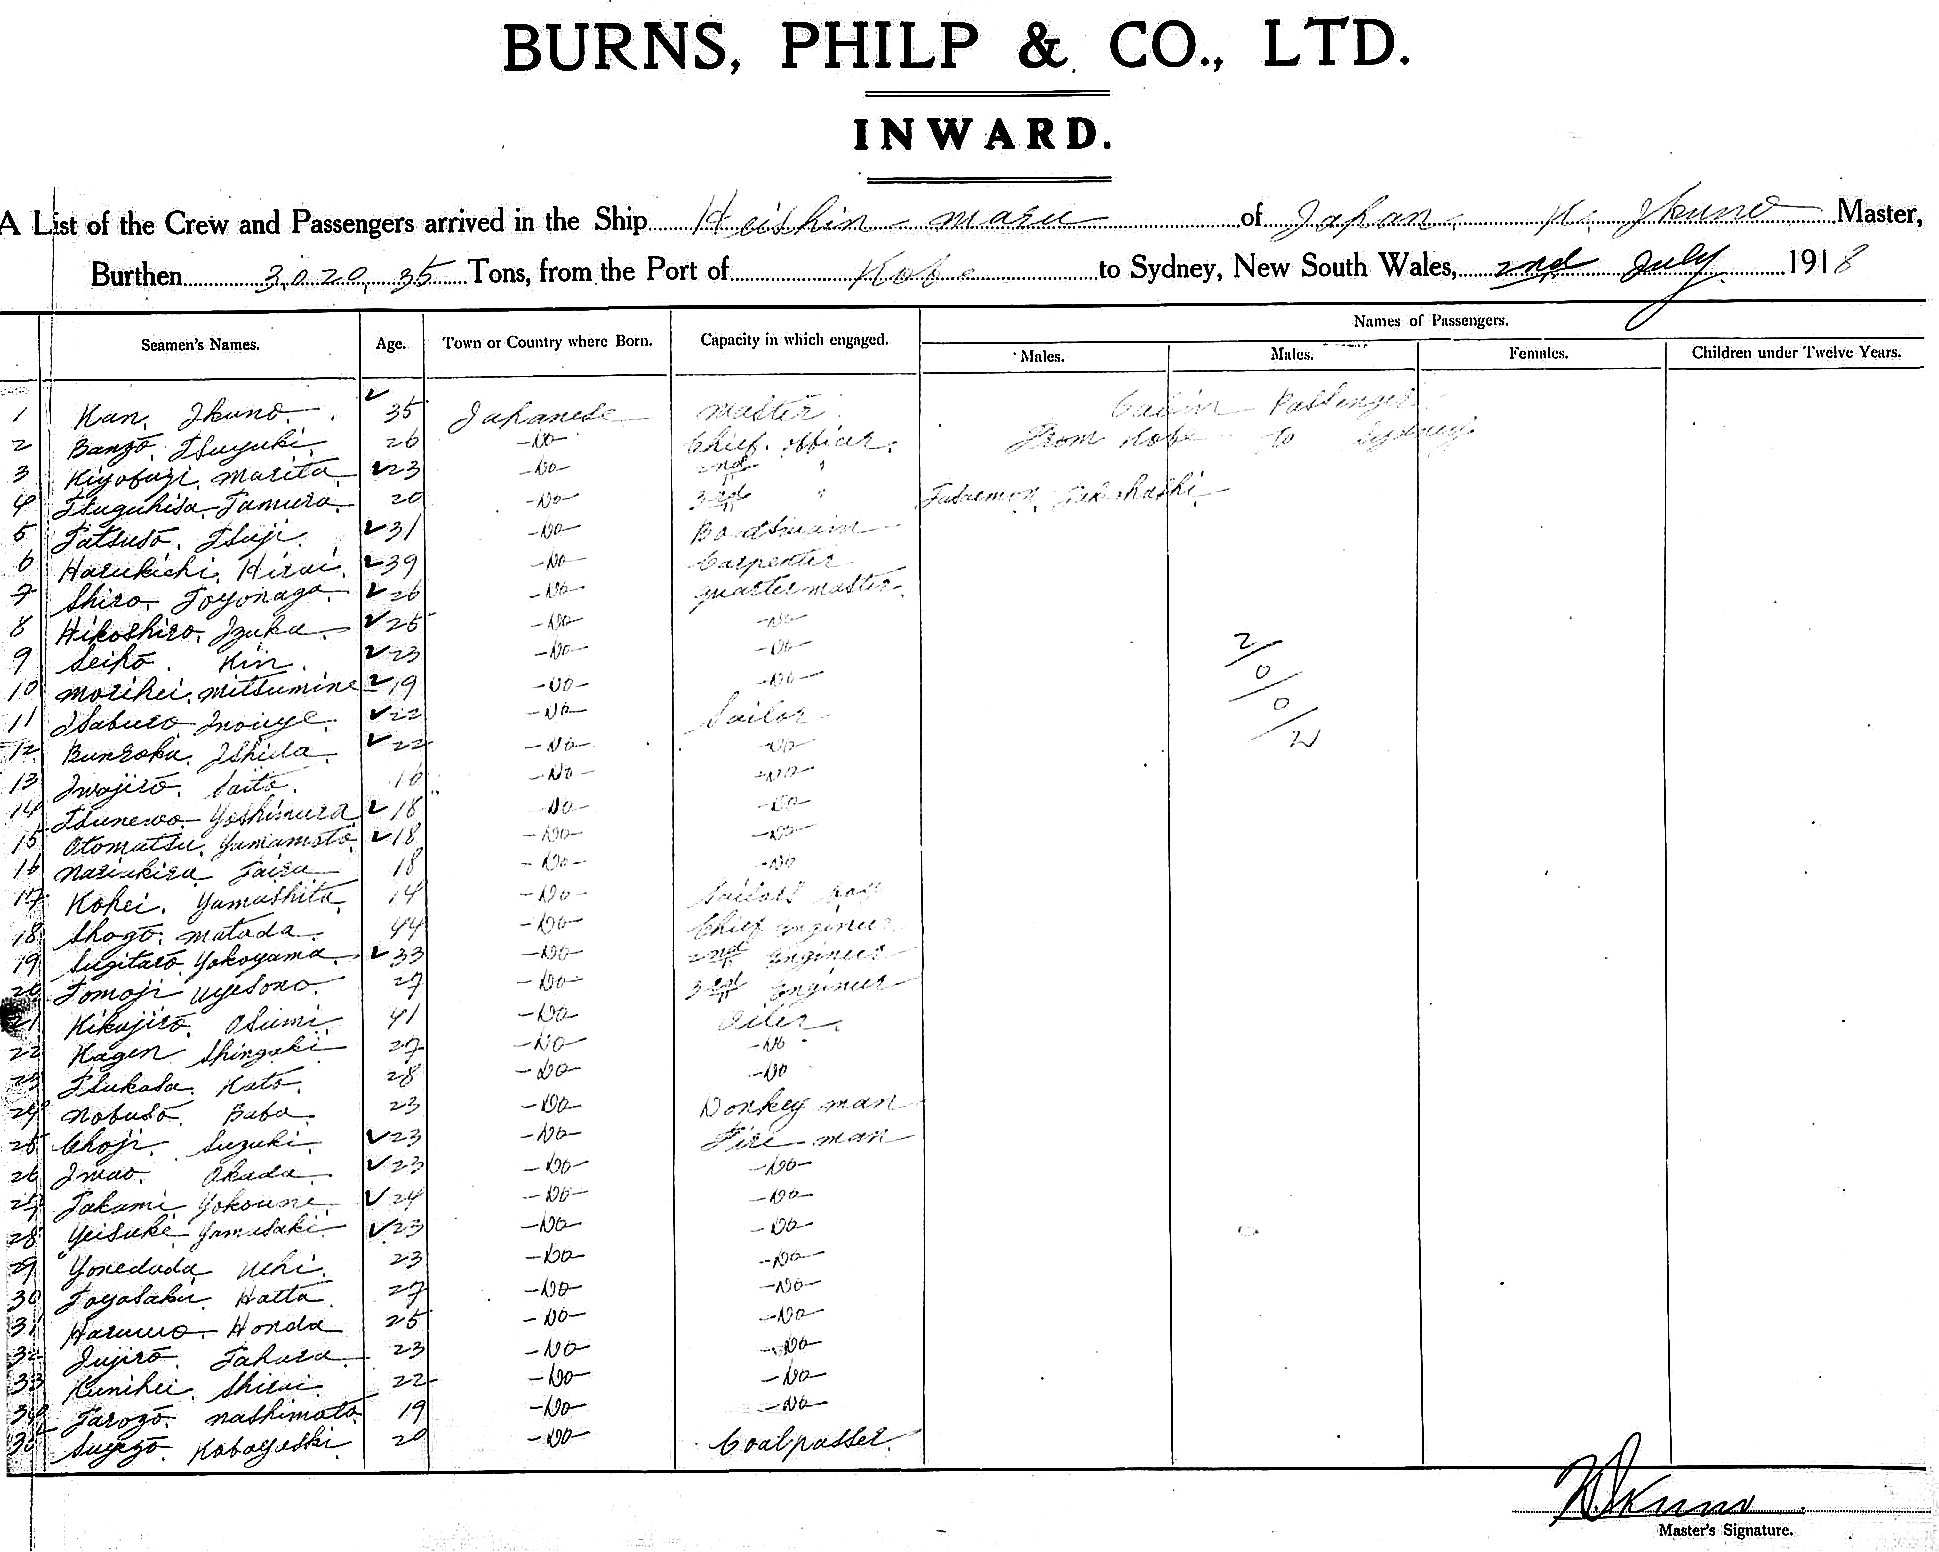 BURNS, PHILP & CO., LTD.
INWARD.
A List of the Crew and Passengers arrived in the Ship Heishin maru of Japan. K. Ikuno Master,
Burthen 3,020.35 Tons, from the Port of Kobe to Sydney, New South Wales, 2nd July 1918
Names of Passengers.
Seamen's Names. Age. Town or Country where Born. Capacity in which engaged. Males. Males. Females. Children under Twelve Years.
1 Kan. Ikuno. 35 Japanese master. Cabin Passenger
2 Banzō. Tsuyuki. 26 -Do- Chief. officer. From Kobe to Sydney.
3 Kiyofuji. Marita 23 -Do- 2nd "
4 Tsuguhisa. Tamura 20 -Do- 3rd " Takahashi
5 Tatsusō. Tsuji. 31 -Do- Boatswain
6 Harukichi. Hirai. 39 -Do- Carpenter
7 Shiro. Toyonaga. 26 -Do- quartermaster.
8 Hikoshiro. Izuka. 25 -Do- -Do-
9 Seikō. Kin. 23 -Do- -Do-
10 Morihei. Mitsumine 19 -Do- -Do-
11 Isaburo Inouye. 22 -Do- Sailor
12 Bunroku. Ishida. 22 -Do- -Do-
13 Iwajirō. Saitō. 16 -Do- -Do-
14 Tsunewo Yoshimura 18 -Do- -Do-
15 Otomatsu. Yamamoto 18 -Do- -Do-
16 Nariakira Taira 18 -Do- -Do-
17 Kohei. Yamashita 14 -Do- Sailors boy
18 Shogō. Matuda. 44 -Do- Chief engineer
19 Sugitarō Yokoyama. 33 -Do- 2nd Engineer
20 Tomoji Uyesono. 27 -Do- 3rd Engineer
21 Kikujirō. Osumi. 41 -Do- Oiler.
22 Kagen Shingaki 27 -Do- -Do-
23 Tsukasa. Katō. 28 -Do- -Do
24 Nobusō Baba. 23 -Do- Donkey man
25 Choji. Suzuki. 23 -Do- Fire man
26 Iwao. Okada. 23 -Do- -Do-
27 Takami Yokoune. 24 -Do- -Do-
28 Yeisuke Yamasaki 23 -Do- -Do-
29 Yonedada Uehi. 23 -Do- -Do-
30 Toyosaku. Hatta. 27 -Do- -Do-
31 Haruwo Honda 25 -Do- -Do-
32 Jujirō. Tahara. 23 -Do- -Do-
33 Kunihei. Shirai. 22 -Do- -Do-
34 Tarozō. Nashimoto 19 -Do- -Do-
35 Suyezō. Kobayashi. 20 -Do- Coalpasser.
2/0/0/2
K. Ikuno
Master's Signature.